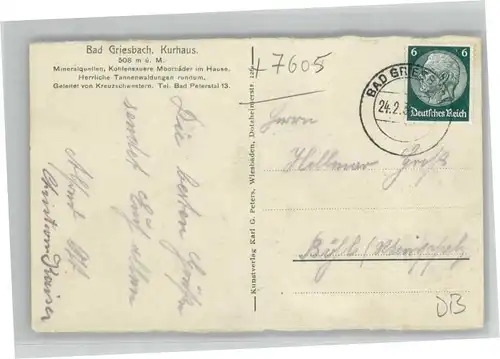 Bad Griesbach. Kurhaus.
508 m ü. M.
Mineralquellen, Kohlensaure Moorbäder im Hause.
Herrliche Tannenwaldungen rundum.
Geleitet von Kreuzschwestern. Tel. Bad Peterstal 13.
Die besten Grüße
sendet Euch allen
Kunstverlag Karl G. Peters, Wiesbaden, Dotzheimerstr.
+ 7605
6 6
Deutsches Reich
BAD GRIESB
24.2.3
Herrn
Hellmar Groß
Bühl
DB